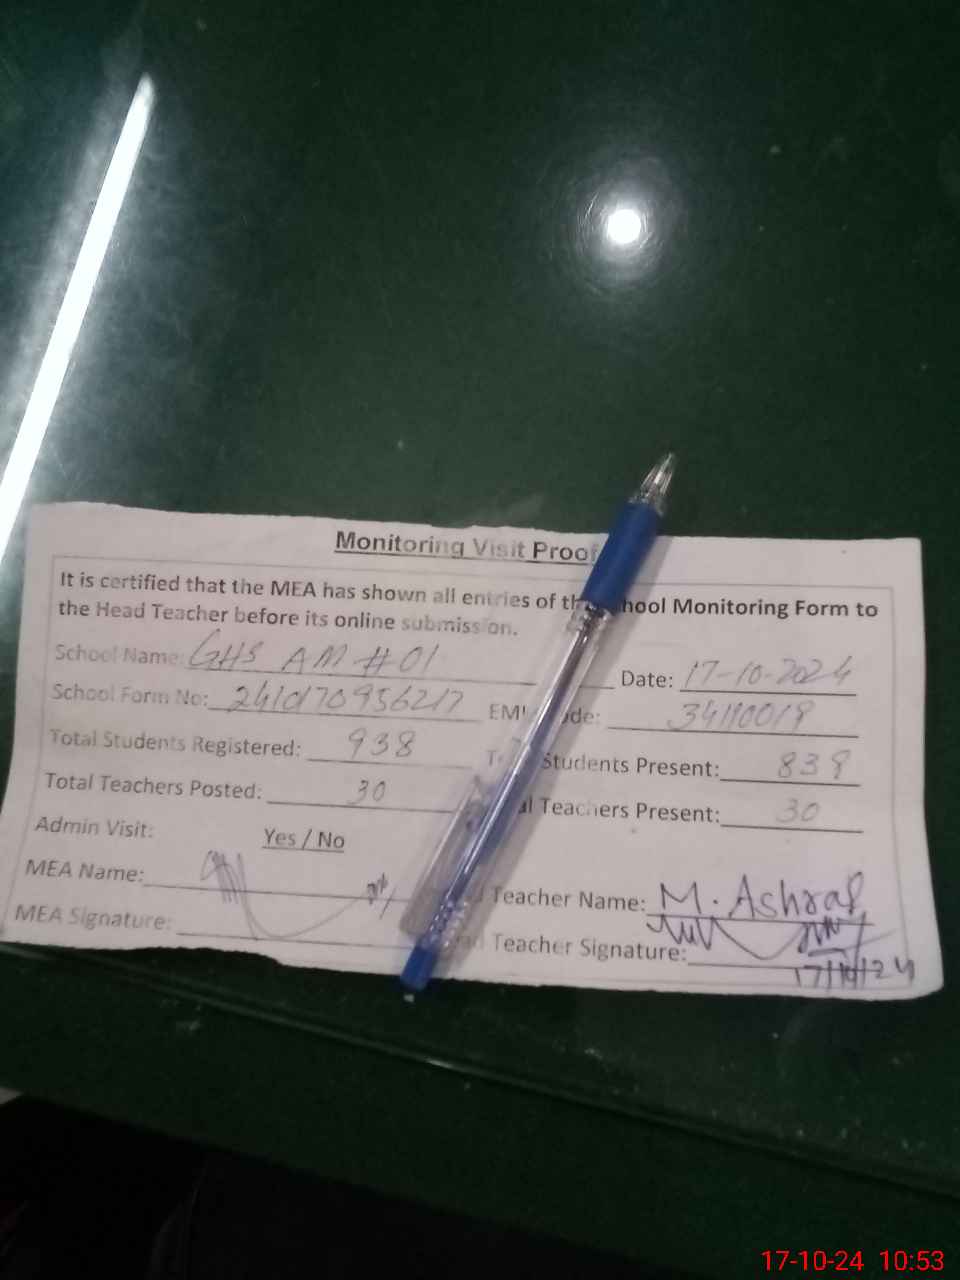 Monitoring Visit Proof
It is certified that the MEA has shown all entries of the School Monitoring Form to
the Head Teacher before its online submission.
School Name: GHS AM # 01 Date: 17-10-2024
School Form No: 2410170956217 Code: 34110019
Total Students Registered: 938 Students Present: 839
Total Teachers Posted: 30 Teachers Present: 30
Admin Visit: Yes / No
MEA Name: Teacher Name: M. Ashraf
MEA Signature: Teacher Signature:
17/10/24
17-10-24 10:53